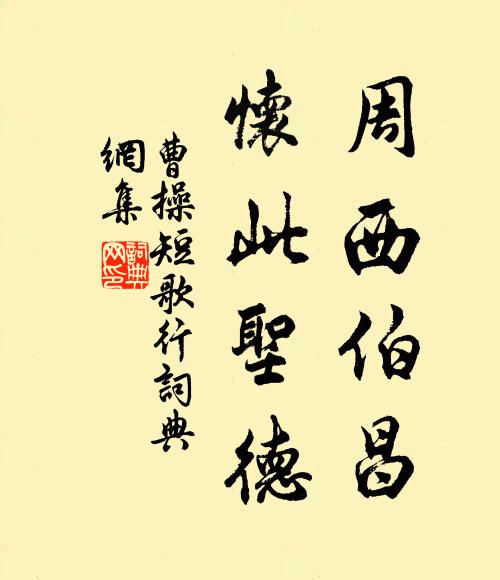 周西伯昌
懷此聖德
曹操短歌行詞典
網集
詞典
网印